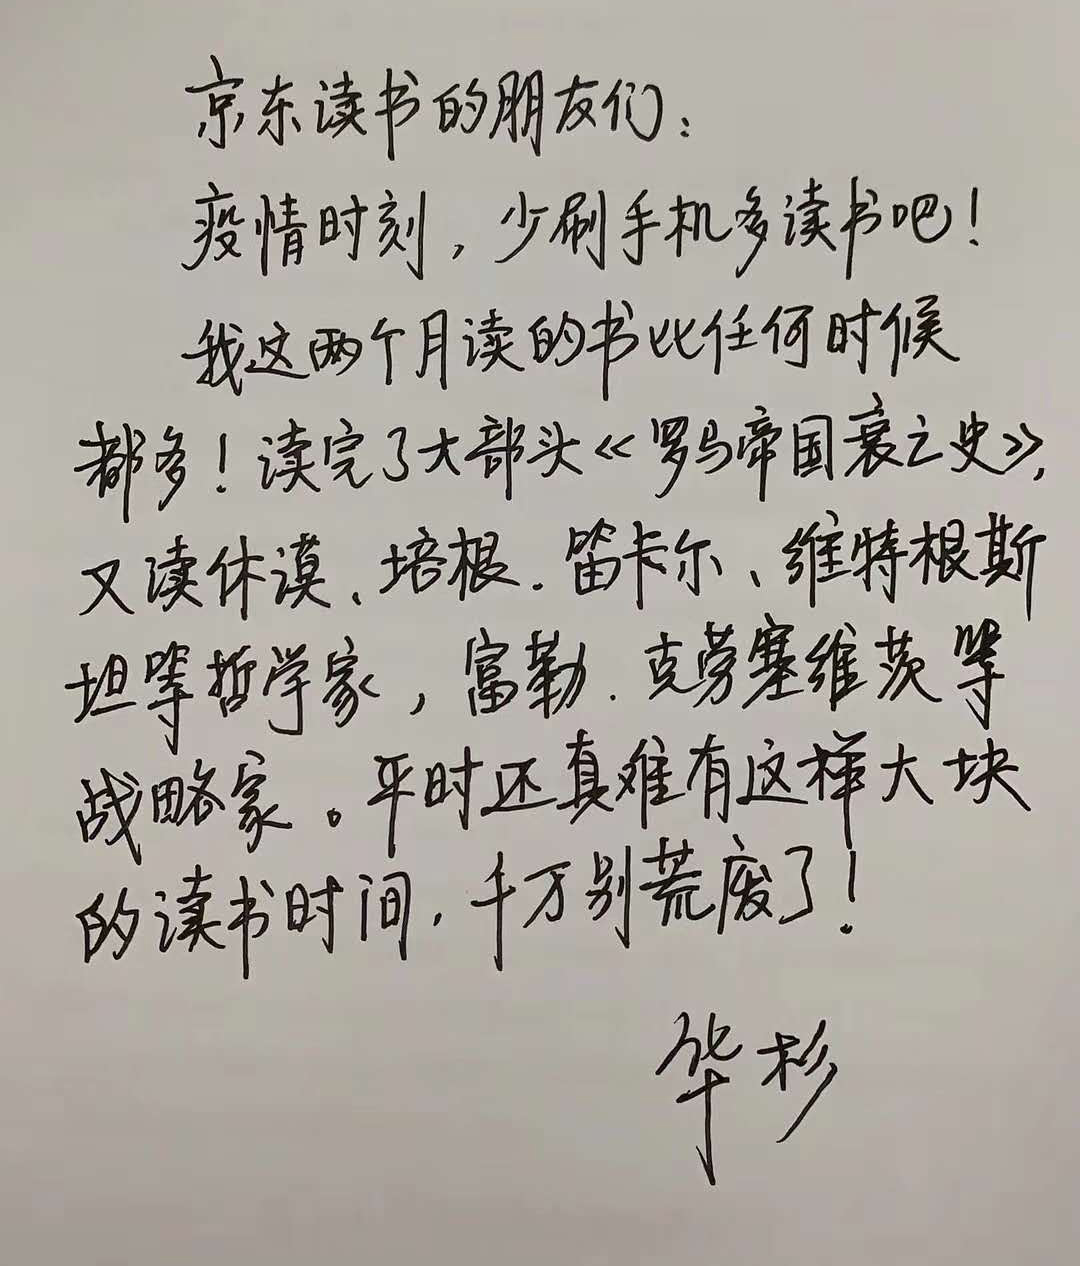 京东读书的朋友们：
疫情时刻，少刷手机多读书吧！
我这两个月读的书比任何时候
都多！读完了大部头《罗马帝国衰亡史》，
又读休谟、培根、笛卡尔、维特根斯
坦等哲学家，富勒、克劳塞维茨等
战略家。平时还真难有这样大块
的读书时间，千万别荒废了！
华杉